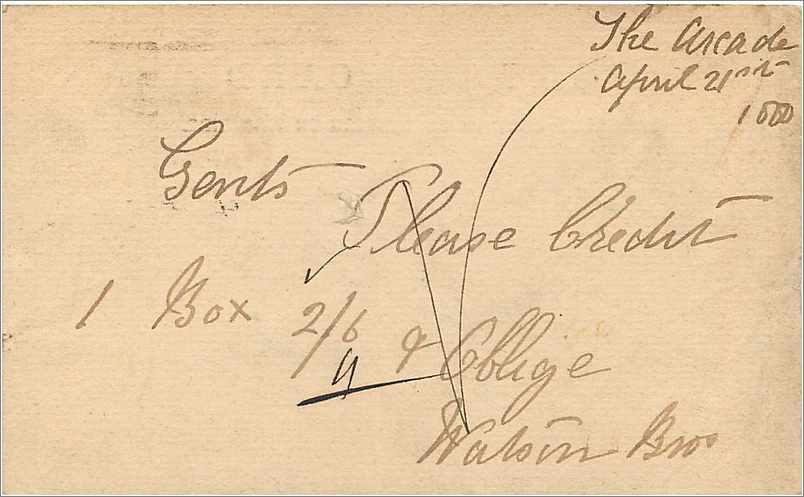 The Arcade
April 21st
1880
Gents
Please Credit
1 Box 2/6 & Oblige
Watson Bros